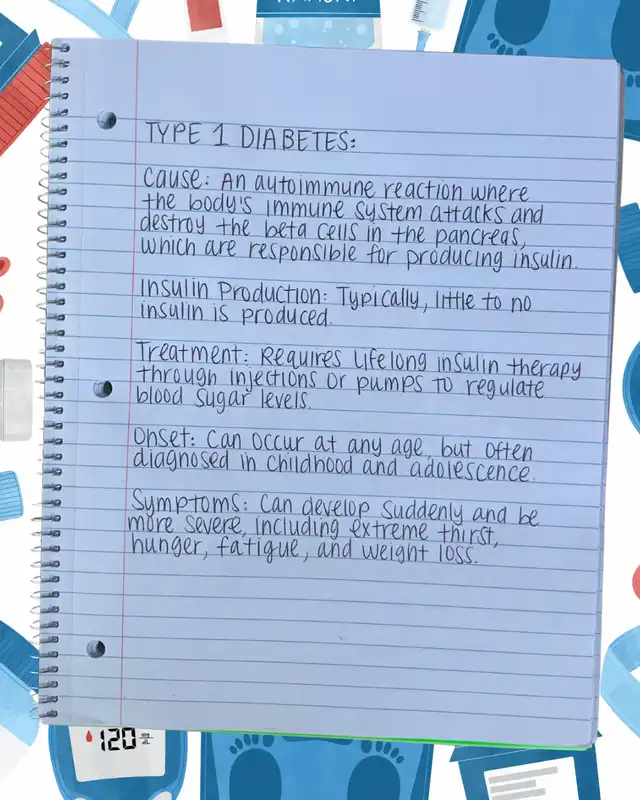 TYPE 1 DIABETES:
Cause: An autoimmune reaction where
the body's immune system attacks and
destroy the beta cells in the pancreas,
which are responsible for producing insulin.
Insulin Production: Typically, little to no
insulin is produced.
Treatment: Requires lifelong insulin therapy
through injections or pumps to regulate
blood sugar levels.
Onset: Can occur at any age, but often
diagnosed in childhood and adolescence.
Symptoms: Can develop suddenly and be
more severe, including extreme thirst,
hunger, fatigue, and weight loss.
120